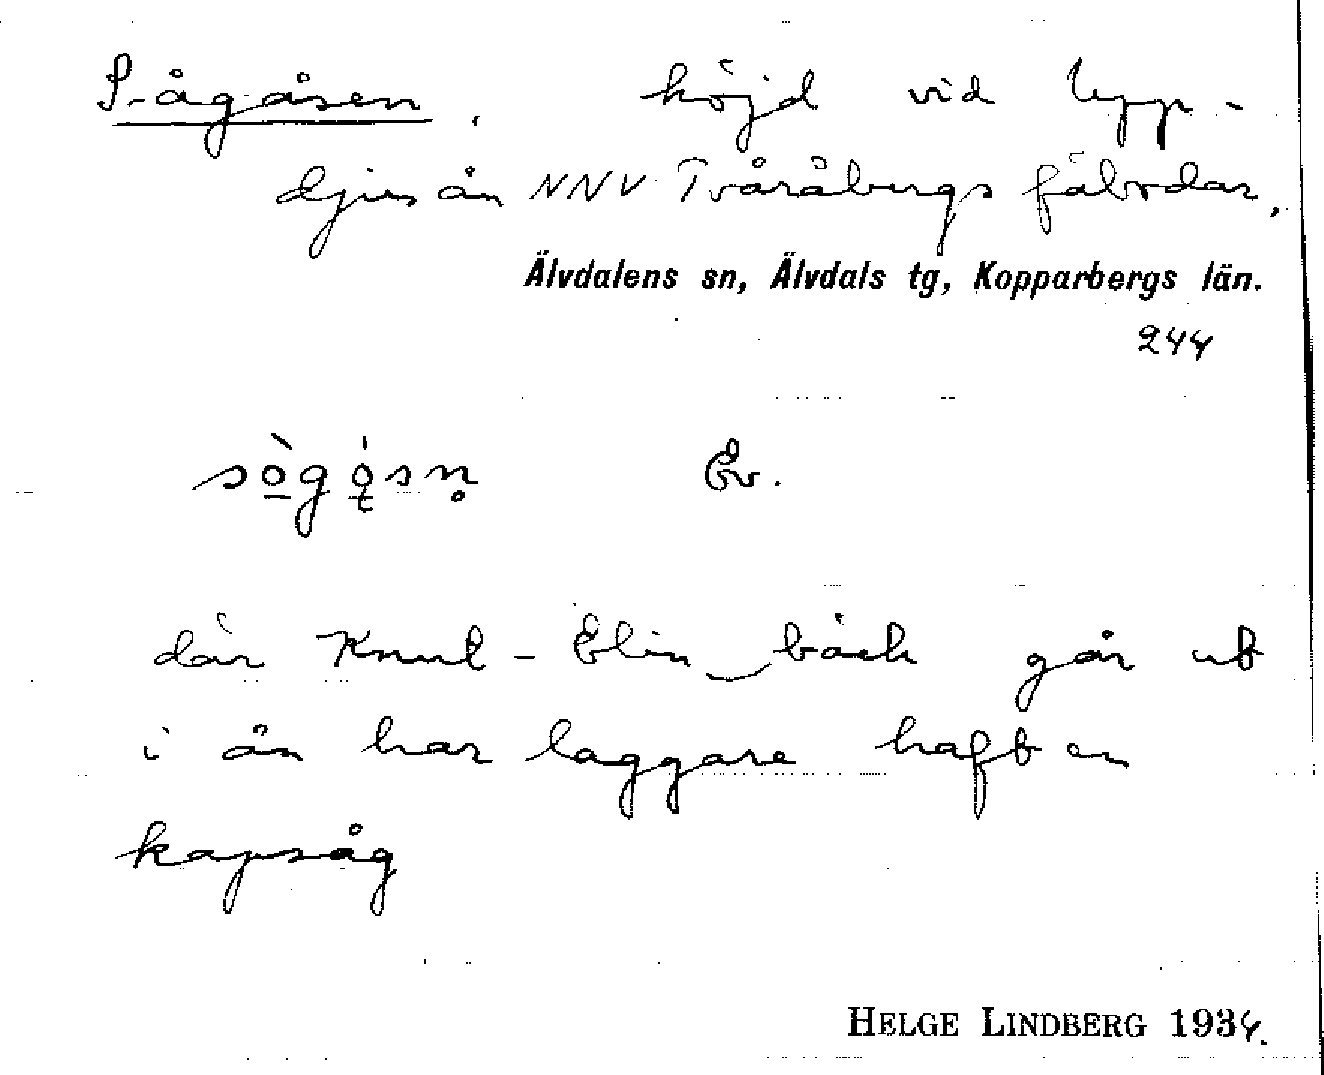 Sågåsen. höjd vid Upp-
djusån NNV Tvåråbergs fäbodar,
Älvdalens sn, Älvdals tg, Kopparbergs län.
244
Ev.
där Knut-Elin bäck går ut
i ån har laggare haft en
kapsåg
HELGE LINDBERG 1934.